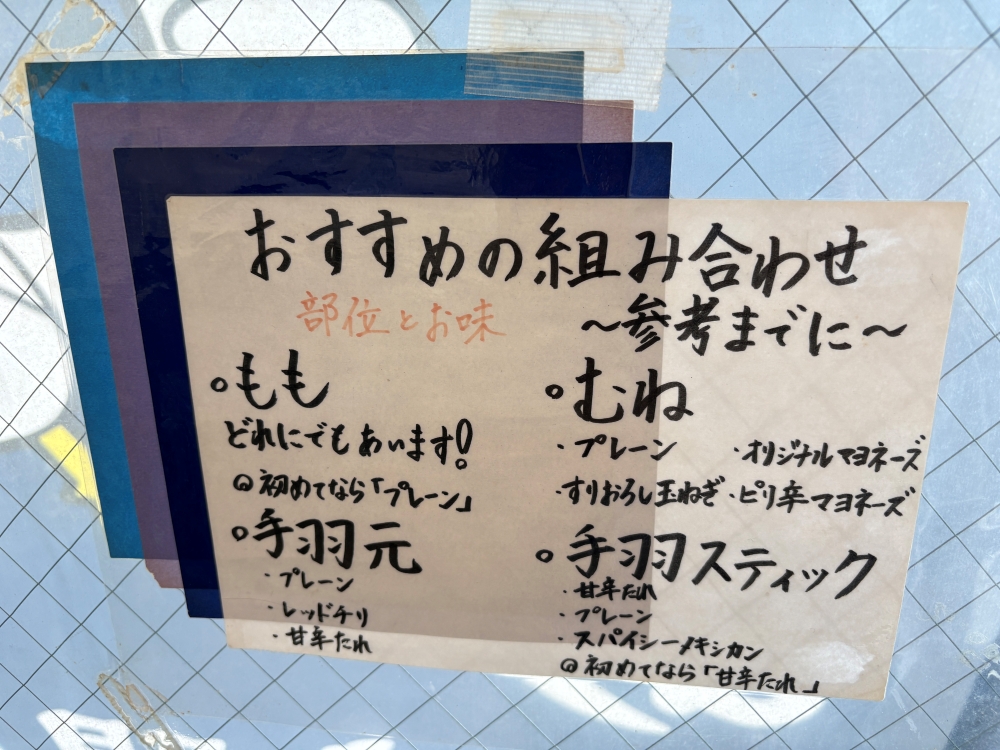 おすすめの組み合わせ
部位とお味
～参考までに～
○もも
どれにでもあいます!
◎初めてなら「プレーン」
○むね
・プレーン
・オリジナルマヨネーズ
・すりおろし玉ねぎ
・ピリ辛マヨネーズ
○手羽元
・プレーン
・レッドチリ
・甘辛たれ
○手羽スティック
・甘辛たれ
・プレーン
・スパイシーメキシカン
◎初めてなら「甘辛たれ」